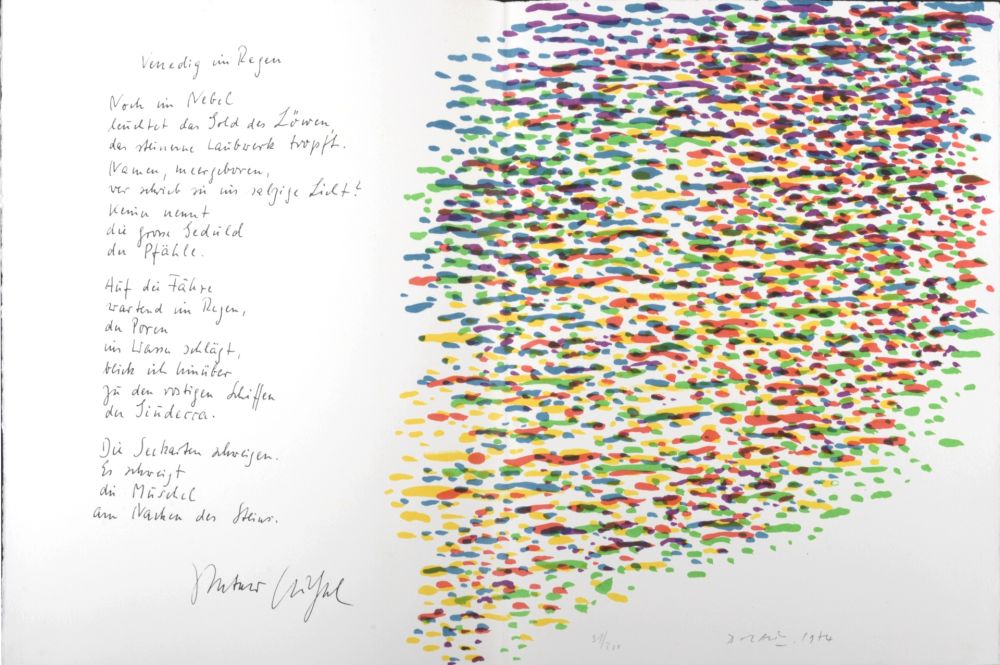 Venedig im Regen
Noch im Nebel
leuchtet das Gold des Löwen,
das steinerne Laubwerk tropft.
Namen, meergeboren,
wer schrieb sie ins salzige Licht?
Keiner nennt
die grosse Geduld
der Pfähle.
Auf die Fähre
wartend im Regen,
der Poren
ins Wasser schlägt,
blick ich hinüber
zu den rostigen Schiffen
der Giudecca.
Die Seekarten schweigen.
Es schweigt
die Muschel
am Nacken des Steins.
Peter Huchel
Dorazio. 1974